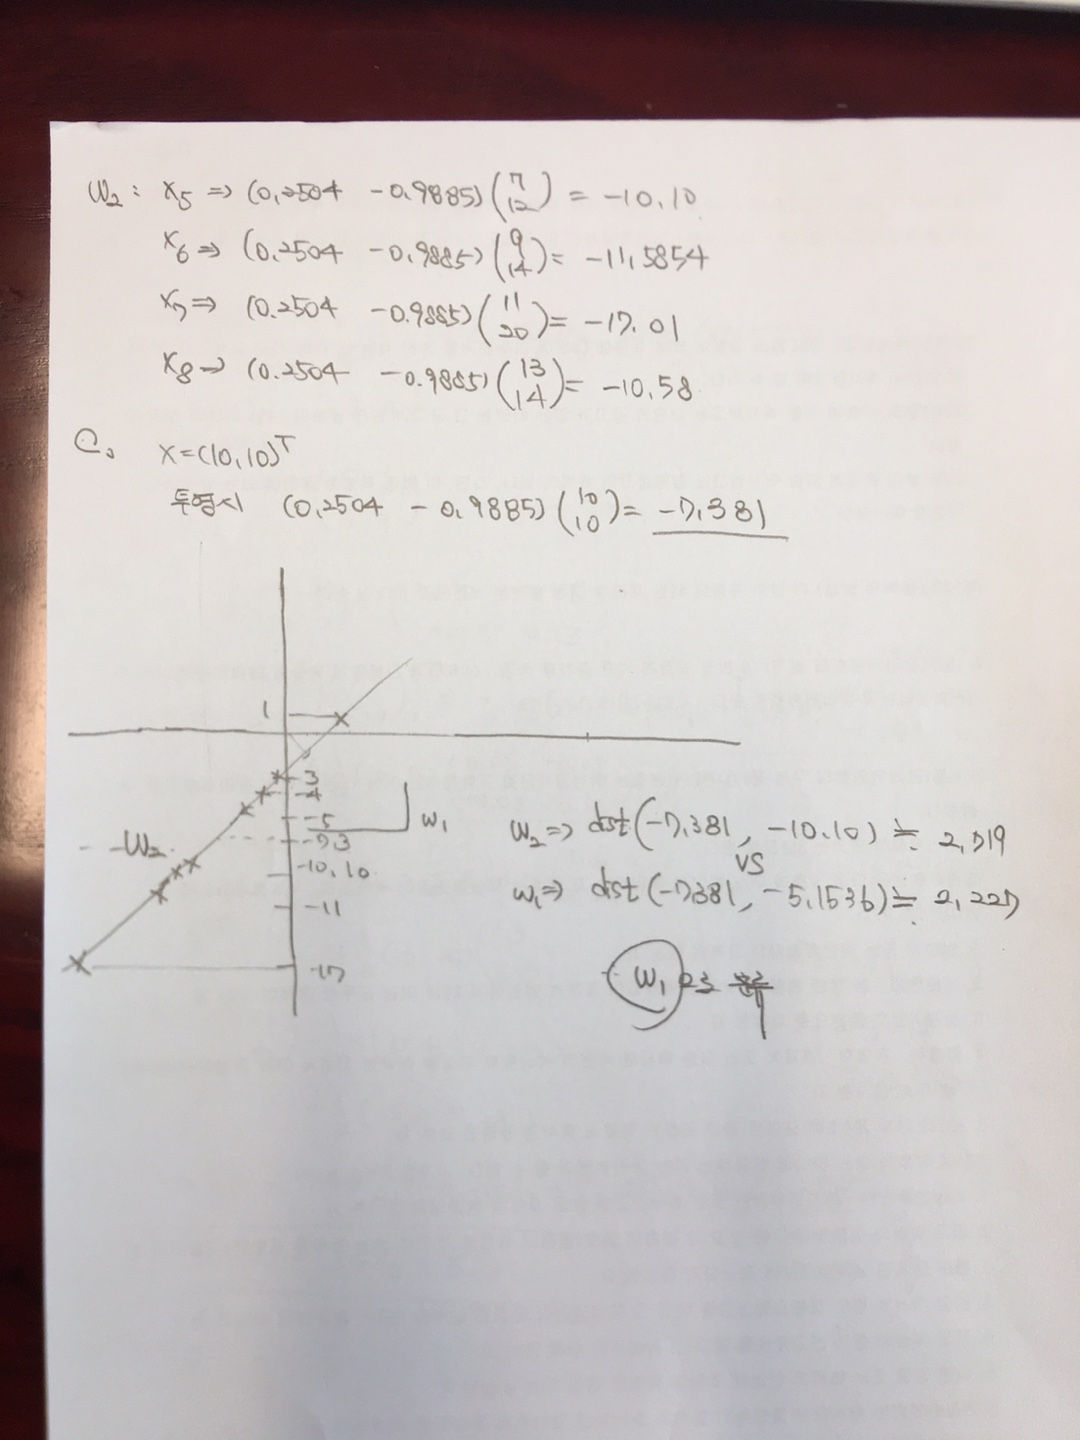 W₂ : x₅ => (0.2504 -0.9885) (7 12) = -10.10
x₆ => (0.2504 -0.9885) (9 14) = -11.5854
x₇ => (0.2504 -0.9885) (11 20) = -17.01
x₈ => (0.2504 -0.9885) (13 14) = -10.58
C. x=(10,10)ᵀ
투영시 (0.2504 -0.9885) (10 10) = -7.381
1
-3
-4
-5
W₁
-7.3
-W₂
-10.10
-11
-17
W₂ => dist(-7.381, -10.10) ≒ 2.719
VS
W₁ => dist(-7.381, -5.1536) ≒ 2.227
W₁ 으로 분류